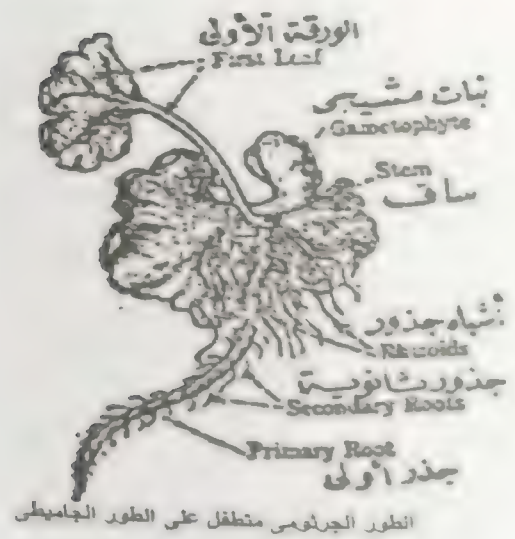 الورقة الأولى
First Leaf
نبات مشيجى
Gametophyte
Stem
ساق
أشباه جذور
Rhizoids
جذور ثانوية
Secondary Roots
Primary Root
جذر أولى
الطور الجرثومى متطفل على الطور الجاميطى